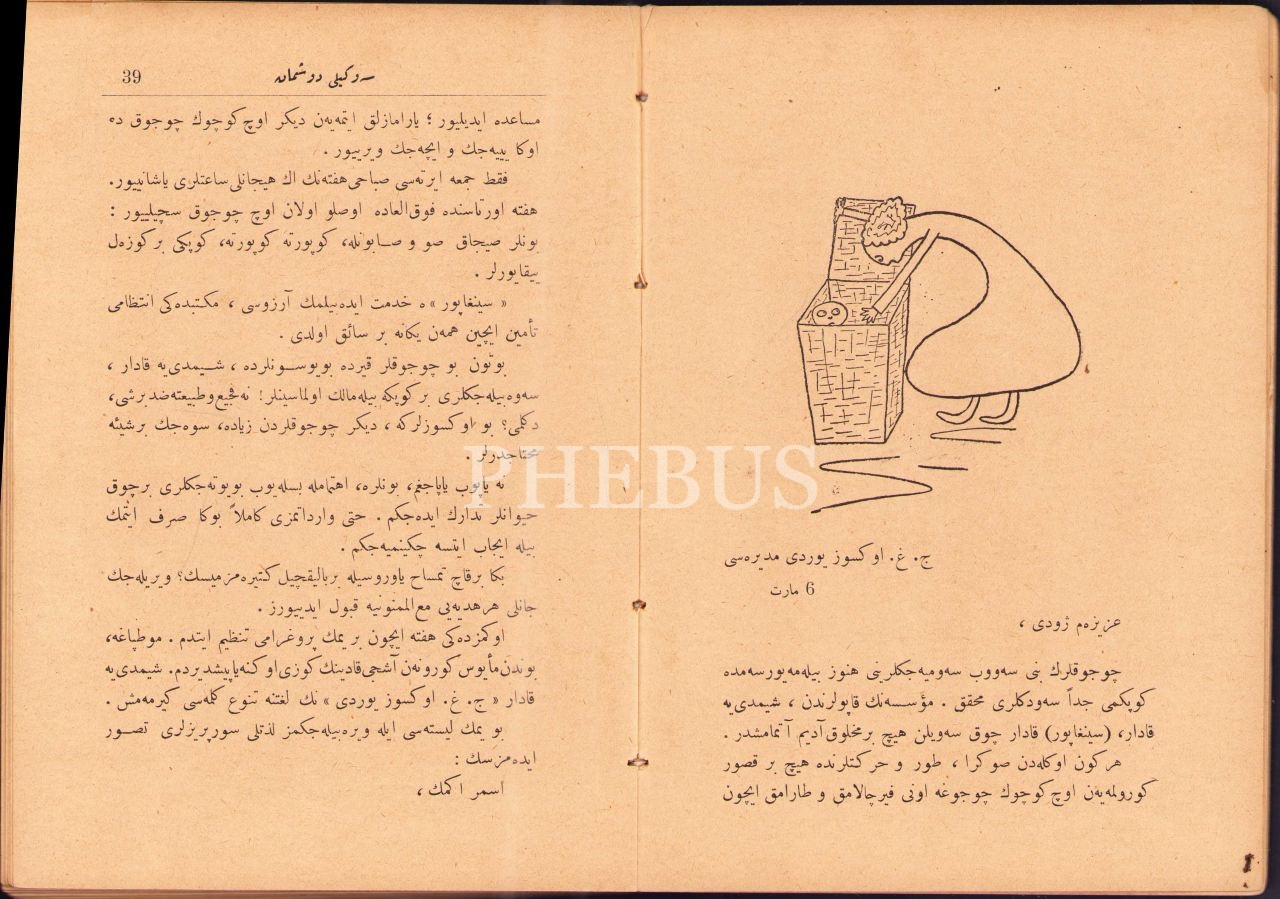 ج. غ. اوكسوز يوردى مديره‌سى
6 مارت
عزيزه‌م ژودى ،
چوجوقلرك بنى سه‌ووب سه‌وميه‌جكلرينى هنوز بيله‌مه‌يورسه‌مده
كوپكمى جداً سه‌ودكلرى محقق . مؤسسه‌نك قاپولرندن ، شيمدى‌يه
قادار، (سينغاپور) قادار چوق سه‌ويلن هيچ بر مخلوق آديم آتمامشدر .
هركون اوكله‌دن صوكرا ، طور و حركتلرنده هيچ بر قصور
كورولمه‌يه‌ن اوچ كوچوك چوجوغه اونى فيرچالامق و طارامق ايچون
سه‌وكيلى دوشمان
39
مساعده ايديليور ؛ يارامازلق ايتمه‌يه‌ن ديكر اوچ كوچوك چوجوق ده
اوكا يييه‌جك و ايچه‌جك ويرييور .
فقط جمعه ايرته‌سى صباحى هفته‌نك اك هيجانلى ساعتلرى ياشانييور.
هفته اورتاسنده فوق‌العاده اوصلو اولان اوچ چوجوق سچيلييور :
بونلر صيجاق صو و صابونله، كوپورته كوپورته، كوپكى بر كوزه‌ل
ييقايورلر .
« سينغاپور » ه خدمت ايده‌بيلمك آرزوسى ، مكتبده‌كى انتظامى
تأمين ايچين همه‌ن يكانه بر سائق اولدى .
بوتون بو چوجوقلر قيرده بويوسونلرده ، شيمدى‌يه قادار ،
سه‌وه‌بيله‌جكلرى بر كوپكه بيله مالك اولماسينلر! نه فجيع و طبيعته ضد بر شى،
دكلمى؟ بو اوكسوزلركه ، ديكر چوجوقلردن زياده، سوه‌جك بر شيئه
محتاجدرلر .
نه ياپوب ياپاجغم، بونلره، اهتمامله بسله‌يوب بويوته‌جكلرى بر چوق
حيوانلر تدارك ايده‌جكم . حتى وارداتمزى كاملاً بوكا صرف ايتمك
بيله ايجاب ايتسه چكينميه‌جكم .
بكا بر قاچ تمساح ياوروسيله بر باليقچيل كتيره‌مزميسك؟ ويريله‌جك
جانلى هر هديه‌يى مع‌الممنونيه قبول ايدييورز .
اوكمزده‌كى هفته ايچون بر يمك پروغرامى تنظيم ايتدم . موطپاغه،
بوندن مأيوس كورونه‌ن آشجى قادينك كوزى اوكنه ياپيشديردم. شيمدى‌يه
قادار « ج. غ. اوكسوز يوردى » نك لغتنه تنوع كله‌سى كيرمه‌مش .
بو يمك ليسته‌سى ايله ويره‌بيله‌جكمز لذتلى سورپريزلرى تصور
ايده‌مزسك :
اسمر اكمك ،
PHEBUS